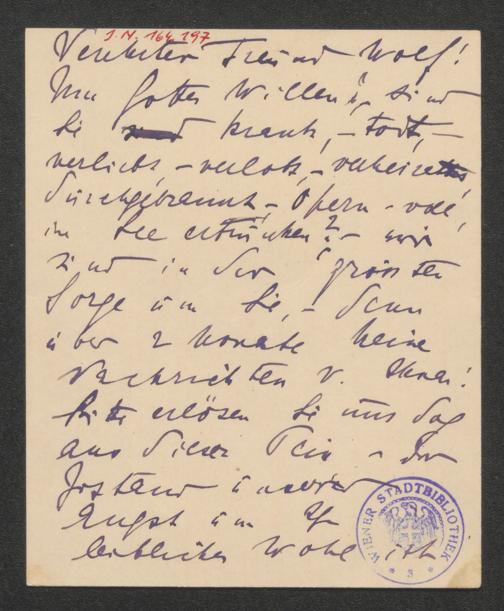 I.N. 164.197
Verehrter Freund Wolf!
Um Gottes Willen, sind
Sie krank, – todt, –
verliebt, – verlobt, – verheiratet,
durchgebrannt, – Opern – voll,
im See ertrunken? – wir
sind in der grössten
Sorge um Sie, – denn
über 2 Monate keine
Nachrichten v. Ihnen!
Bitte erlösen Sie uns doch
aus dieser Pein – der
Zustand unserer
Angst um Ihr
leibliches Wohl ist
WIENER STADTBIBLIOTHEK